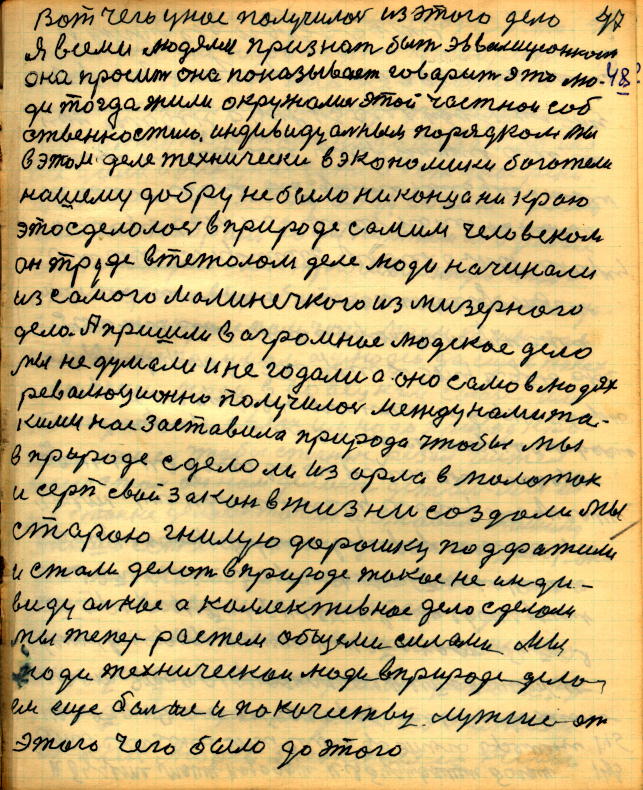 Вот чего у нас получилос из этого дело 47
я всеми людями признат быт эвалюционном
она просит она показывает говарит это лю- 48?
ди тогда жили окружалис этой частной соб
ственностию. индивидуалным порядком мы
в этом деле технически в экономики богатели
нашему добру не было ни конца ни краю
это сделолос в природе самим человеком
он труде в тежолом деле люди начинали
из самого малинечкого из мизерного
дела. А пришли в агромное людское дело
мы не думали и не годали а оно само в людях
революционно получилос между нами та-
кими нас заставила природа чтобы мы
в природе сделоли из орла в молоток
и серп свой закон в жизни создали мы
старою гнилую дорошку подфатили
и стали делот в природе такое не инди-
видуалное а коллективное дело сделоли
мы тепер растем общеми силами мы
люди техническои люди в природе дело
ем еще болше и по качеству лутше от
этого чего было до этого